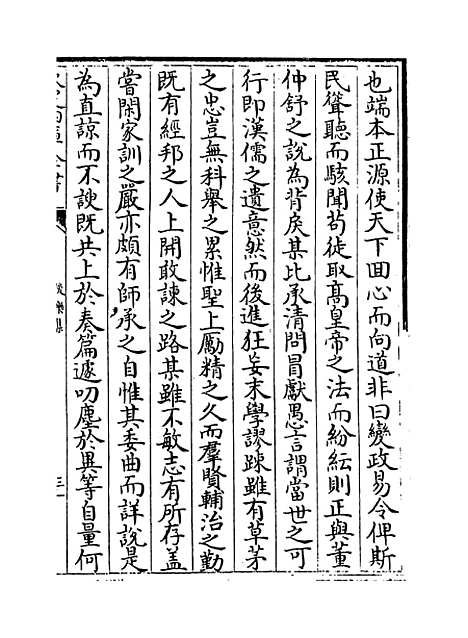 也端本正源使天下回心而向道非曰變政易令俾斯
民聳聽而駭聞苟徒取高皇帝之法而紛紜則正與董
仲舒之說為背戾某比承清問冒獻愚言謂當世之可
行即漢儒之遺意然而後進狂妄末學謬踈雖有草茅
之忠豈無科舉之累惟聖上勵精之久而羣賢輔治之勤
既有經邦之人上開敢諫之路某雖不敏志有所存蓋
嘗閑家訓之嚴亦頗有師承之自惟其委曲而詳說是
為直諒而不諛既共上於奏篇遽叨塵於異等自量何